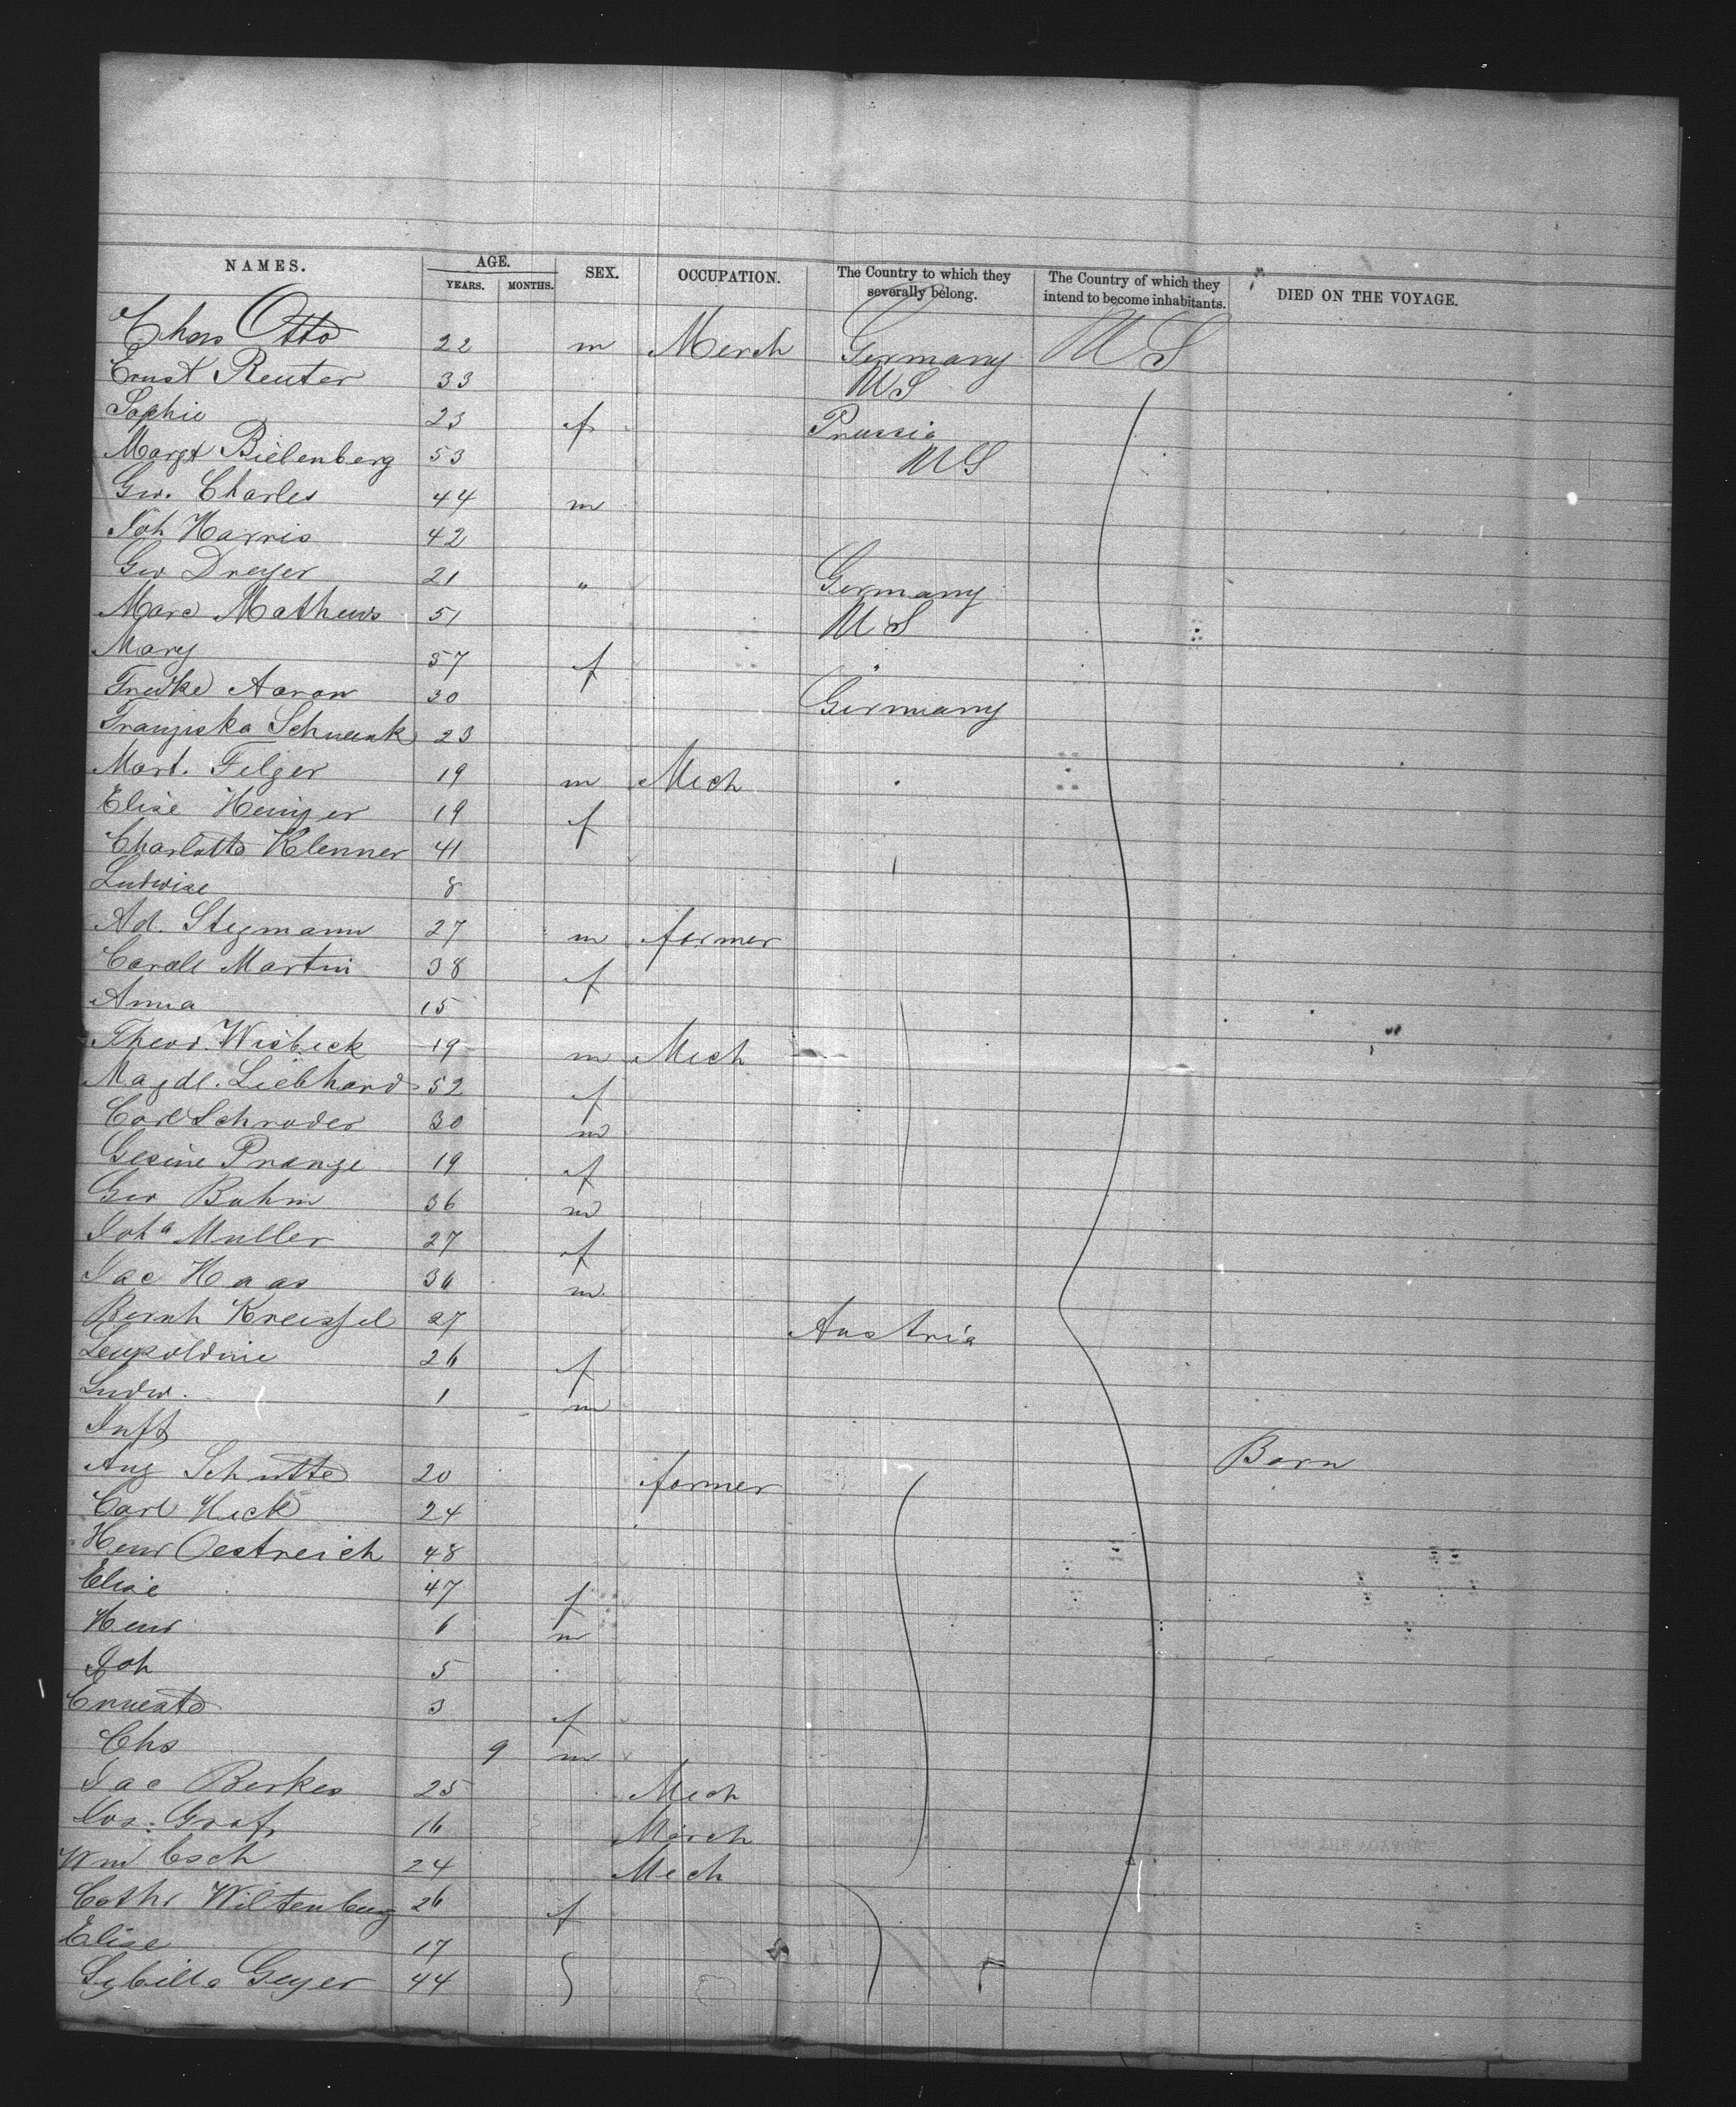 NAMES. AGE. YEARS. MONTHS. SEX. OCCUPATION. The Country to which they severally belong. The Country of which they intend to become inhabitants. DIED ON THE VOYAGE.
Chas Otto 22 m Merch Germany U S
Ernst Reuter 33 U S
Sophie 23 f Prussia
Margt Bielenberg 53 U S
Geo. Charles 44 m
Joh Harris 42
Geo Dreyer 21 " Germany
Marc Mathews 51 U S
Mary 57 f "
Fredke Aaron 30 Germany
Franziska Schwenk 23
Mart. Filger 19 m Mech
Elise 19 f
Charlotte Klenner 41
Ludwise 8
Ad. Stegmann 27 m farmer
Carole Martin 38 f
Anna 15
Theod. Wisbeck 19 m Mech
Magdl. Liebhard 52 f
Carl Schroder 30 m
Gesine Prange 19 f
Geo Bohm 36 m
Joha Muller 27 f
Jac Haas 36 m
Bernh Kreissel 27 Austria
Leupoldine 26 f
Ludw. 1 m
Inft Born
Aug Schutte 20 farmer
Carl Heck 24
Henr Oestreich 48
Elise 47 f
Henr 6 m
Joh 5
Ernesto 3 f
Chs 9 m
Jac Berkes 25 Mech
Jos. Graf 16 Merch
Wm Esch 24 Mech
Cathr Wiltenburg 26 f
Elise 17
Sybilla Geyer 44